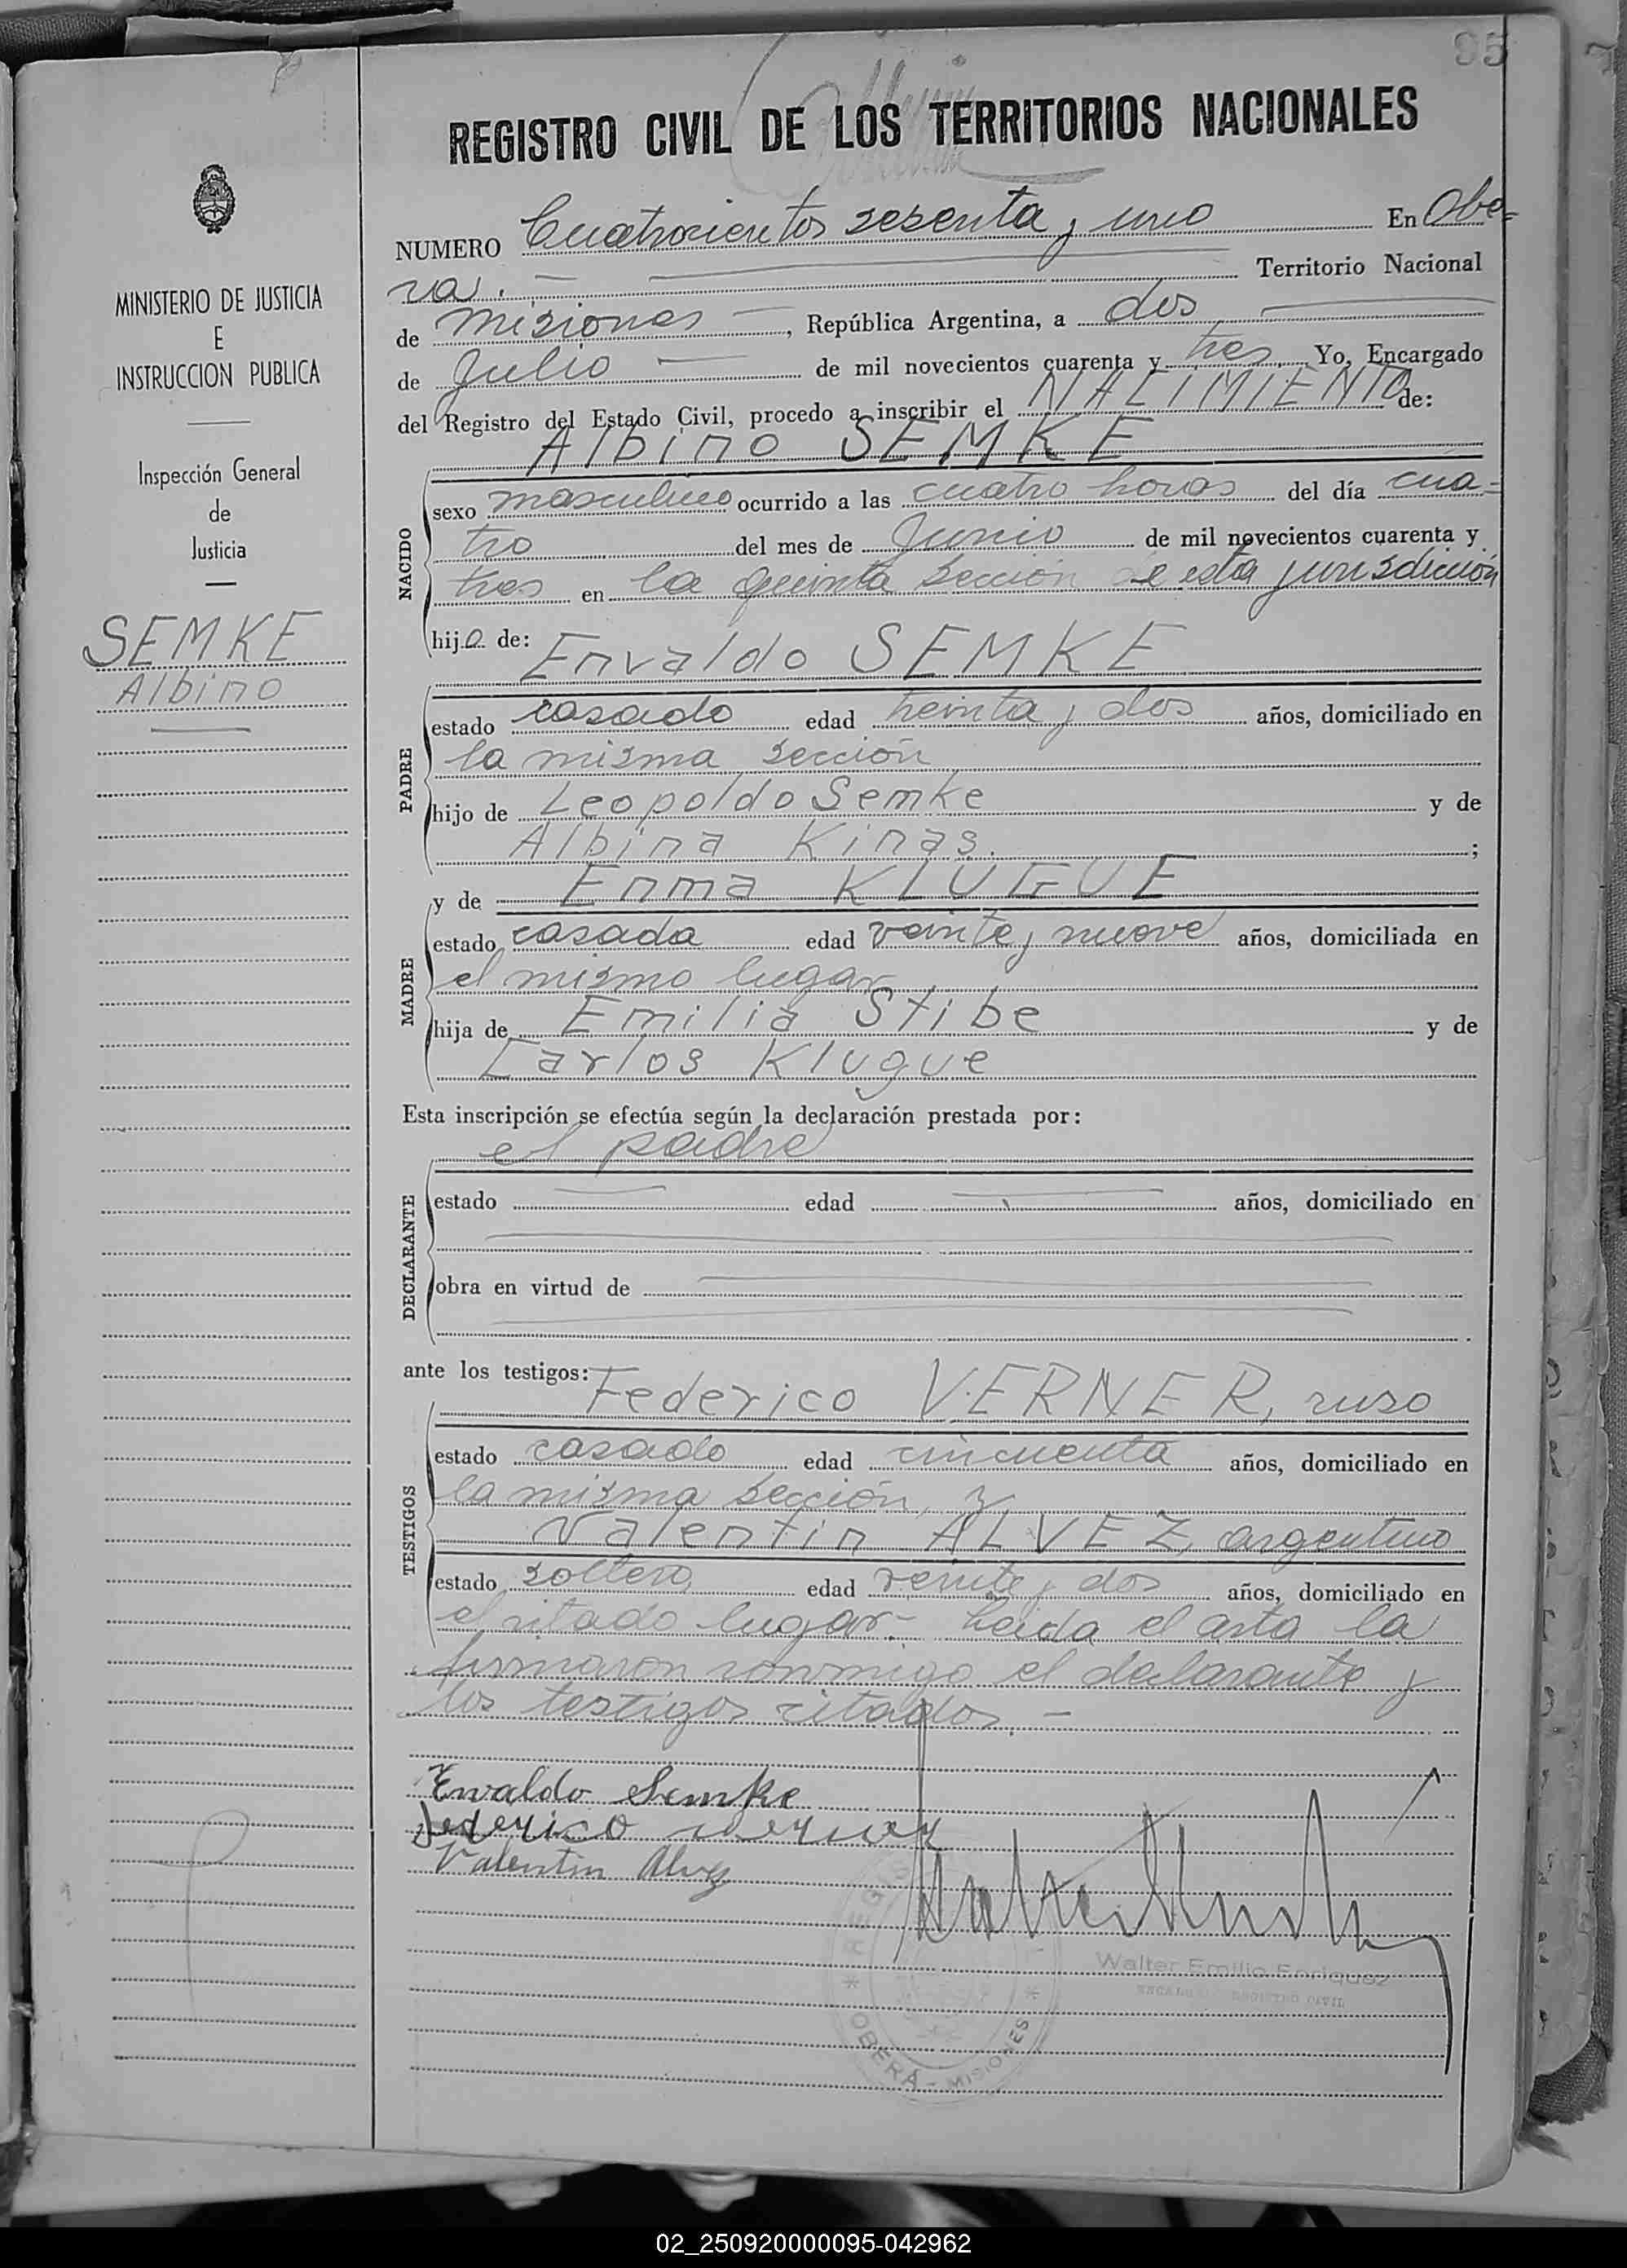 95
REGISTRO CIVIL DE LOS TERRITORIOS NACIONALES
MINISTERIO DE JUSTICIA
E
INSTRUCCION PUBLICA
Inspección General
de
Justicia
SEMKE
Albino
NUMERO Cuatrocientos sesenta y uno En Obe=
ra. Territorio Nacional
de Misiones, República Argentina, a dos
de Julio de mil novecientos cuarenta y tres. Yo, Encargado
del Registro del Estado Civil, procedo a inscribir el NACIMIENTO de:
Albino SEMKE
NACIDO
sexo masculino ocurrido a las cuatro horas del día cua=
tro del mes de Junio de mil novecientos cuarenta y
tres en la quinta sección de esta jurisdicción
hijo de:
Envaldo SEMKE
PADRE
estado casado edad treinta y dos años, domiciliado en
la misma sección
hijo de Leopoldo Semke y de
Albina Kinas. ;
MADRE
y de Enma KLUGUE
estado casada edad veinte y nueve años, domiciliada en
el mismo lugar
hija de Emilia Stibe y de
Carlos Klugue
Esta inscripción se efectúa según la declaración prestada por:
el padre
DECLARANTE
estado edad años, domiciliado en
obra en virtud de
ante los testigos:
Federico VERNER, ruso
TESTIGOS
estado casado edad cincuenta años, domiciliado en
la misma sección, y
Valentin ALVEZ, argentino
estado soltero, edad veinte y dos años, domiciliado en
el citado lugar.- Leida el acta la
firmaron conmigo el declarante y
los testigos citados. -
Ewaldo Semke
Federico werner
Valentin Alvez
Walter Emilio Enriquez
ENCARGADO REGISTRO CIVIL
REGIS
OBERÁ - MISIONES
02_250920000095-042962